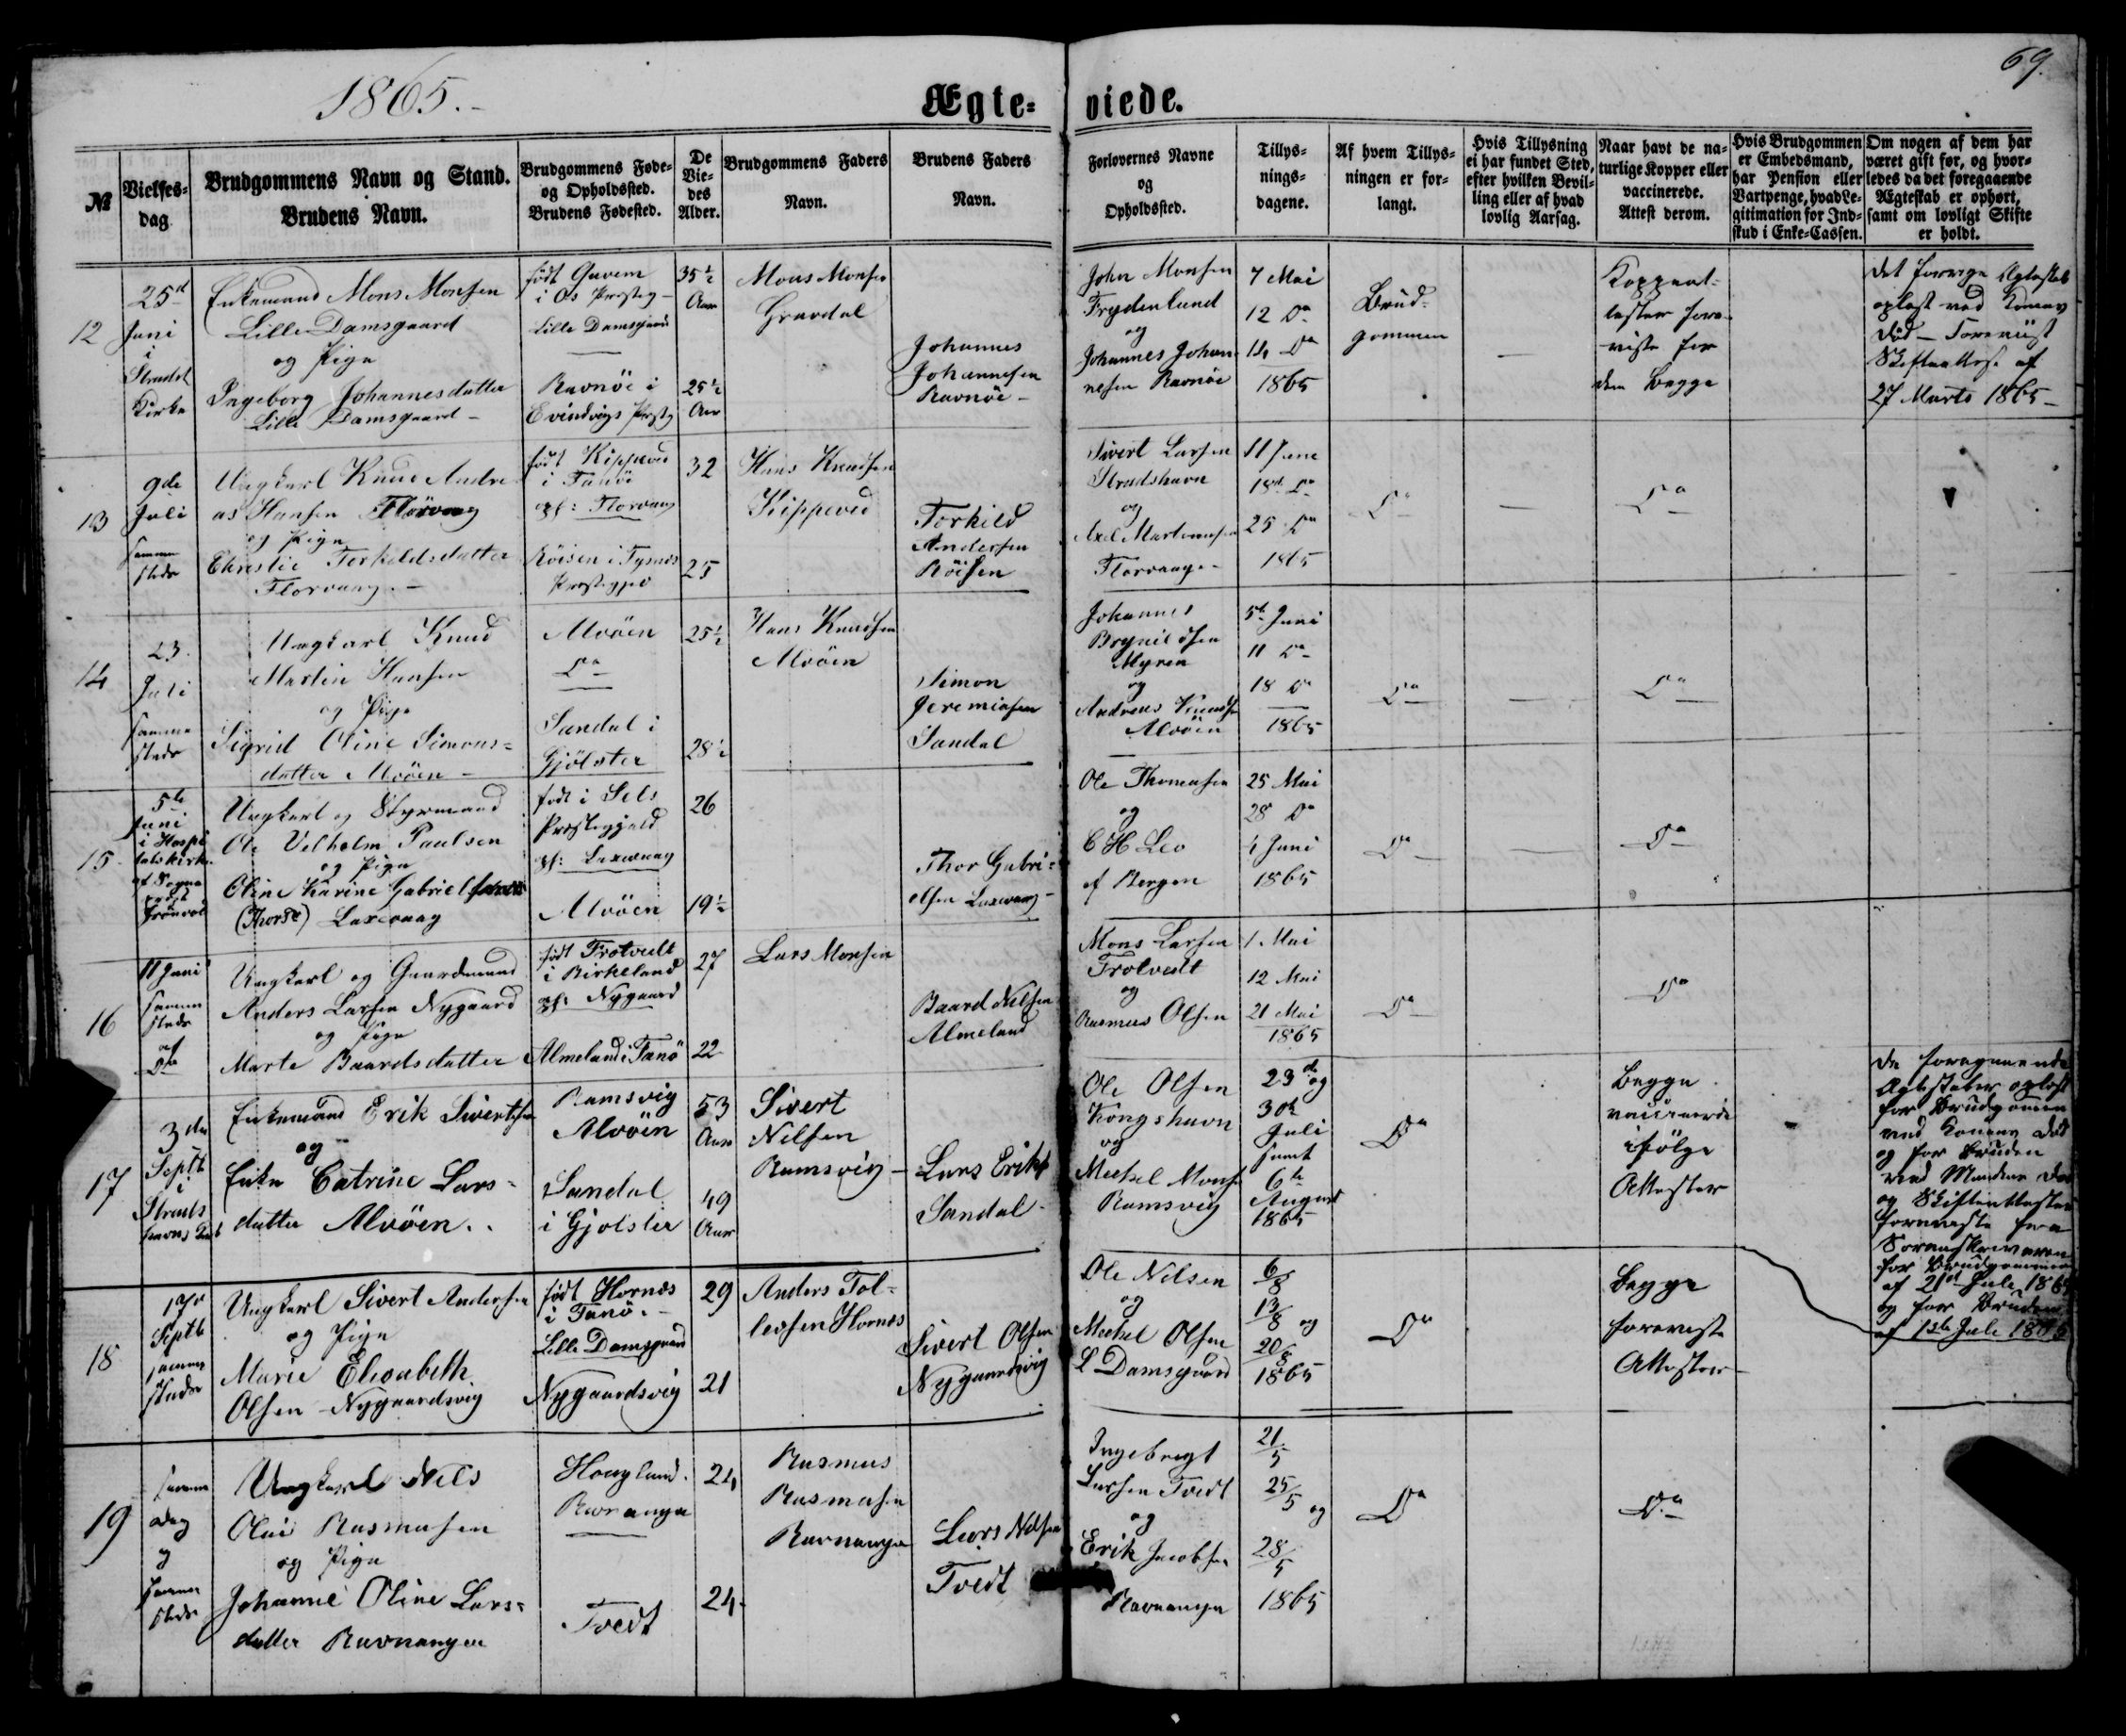 1865.-
Ægte=
viede.
69.
№
Vielses=
dag.
Brudgommens Navn og Stand.
Brudens Navn.
Brudgommens Føde=
og Opholdssted.
Brudens Fødested.
De
Vie=
des
Alder.
Brudgommens Faders
Navn.
Brudens Faders
Navn.
Forlovernes Navne
og
Opholdssted.
Tillys=
nings=
dagene.
Af hvem Tillys=
ningen er for=
langt.
Hvis Tillysning
ei har fundet Sted,
efter hvilken Bevil=
ling eller af hvad
lovlig Aarsag.
Naar havt de na=
turlige Kopper eller
vaccinerede.
Attest derom.
Hvis Brudgommen
er Embedsmand,
har Pension eller
Vartpenge, hvad Le=
gitimation for Ind=
skud i Enke=Cassen.
Om nogen af dem har
været gift før, og hvor=
ledes da det foregaaende
Ægteskab er ophørt,
samt om lovligt Skifte
er holdt.
12
25d
Juni
i
Kirke
Enkemand Mons Monsen
Lille Damsgaard
og Pige
Ingeborg Johannesdatter
Lille Damsgaard -
født
i Os Præsteg -
Lille Damsgaard
Ravnöe i
Evindvigs Præstg
35½
Aar
25½
Aar
Mons Monsen
Gravdal
Johannes
Johannesen
Ravnöe -
John Monsen
Frydenlund
og
Johannes Johan-
nesen Ravnöe
7 Mai
12 Do
14 Do
1865
Brud-
gommen
-
Koppeat-
tester fore-
viste for
dem Begge
Det forrige Ægteskab
opløst ved Konens
Død - Foreviist
Skifteattest af
27 Marts 1865 -
13
9de
Juli
samme
steds
Ungkarl Knud Andre
as Hansen Florvaag
og Pige
Christie Torkildsdatter
Florvaag. -
født Kippeved
i Fanöe
Florvaag
Röisen i Tysnæs
Præstegjeld
32
25
Hans Knudsen
Kippeved
Torkild
Andersen
Röisen
Sivert Larsen
Stradshavn
og
Axel Martinusen
Florvaag -
11 June
18de Do
25 Do
1865
Do
-
Do
14
23
Juli
samme
steds
Ungkarl Knud
Martin Hansen
og Pige
Sigrid Oline Simons=
datter Alvöen -
Alvöen
Do
Sandal i
Gjölster
25½
28½
Hans Knudsen
Alvöen
Simon
Jeremiasen
Sandal
Johannes
Brynildsen
Myren
og
Andreas Knudsen
Alvöen
5te Juni
11 Do
18 Do
1865
Do
-
Do
15
5te
Juni
i Hospi
talskirke
af Sogne
præst
Ungkarl og Styrmand
Ole Velhelm Paulsen
og Pige
Oline Karine Gabrielsen
(Thorse) Laxevaag
født i Sels
Præstegjeld
Laxevaag
Alvöen
26
19½
Thor Gabri=
elsen Laxevaag -
Ole Thomassen
og
C H Leo
af Bergen
25 Mai
28 Do
4 Juni
1865
Do
-
Do
16
11 Juni
samme
steds
af
Do
Ungkarl og Gaardmand
Anders Larsen Nygaard
og Pige
Marte Baardsdatter
født Trotvedt
i Birkeland
Nygaard
Almeland i Fanö
27
22
Lars Monsen
Baard Nilsen
Almeland
Mons Larsen
Trotvedt
og
Rasmus Olsen
1. Mai
12 Mai
21 Mai
1865
Do
Do
17
3die
Septb
i
Enkemand Erik Sivertsen
og
Enke Catrine Lars-
datter Alvöen. .
Ramsvig
Alvöen
Sandal
i Gjolster
53
Aar
49
Aar
Sivert
Nilsen
Ramsvig -
Lars Eriks
Sandal -
Ole Olsen
Kongshavn
og
Mickel Monsen
Ramsvig
23de og
30te
Juli
samt
6te
August
1865
Do
Begge
vaccinerede
ifölge
Attester
De foregaaende
Ægteskaber opløst
for Brudgommen
ved Konens Død
og for Bruden
ved Mandens Død
og Skifteattester
foreviste fra
Sorenskriveren
for Brudgommen
af 21de Juli 1865
og for Bruden
af 1ste Juli 1865
18
17de
Septb
samme
steds
Ungkarl Sivert Andersen
og Pige
Marie Elisabeth
Olsen - Nygaardsvig
født Hornæs
i Fanö. -
Lille Damsgaard
Nygaardsvig
29
21
Anders Tol-
lersen Hornæs
Sivert Olsen
Nygaardsvig
Ole Nilsen
og
Mickel Olsen
L Damsgaard
6/8
13/8 og
20/8
1865
Do
Begge
foreviste
Attester
19
samme
Dag
og
samme
steds
Ungkarl Nils
Olai Rasmusen
og Pige
Johanne Oline Lars-
datter Ravnanger
Hougland.
Ravnanger
Tvedt
24
24.
Rasmus
Rasmusen
Ravnanger
Lars Nilsen
Tvedt
Ingebregt
Larsen Tvedt
og
Erik Jacobsen
Ravnanger
21/5
25/5 og
28/5
1865
Do
Do